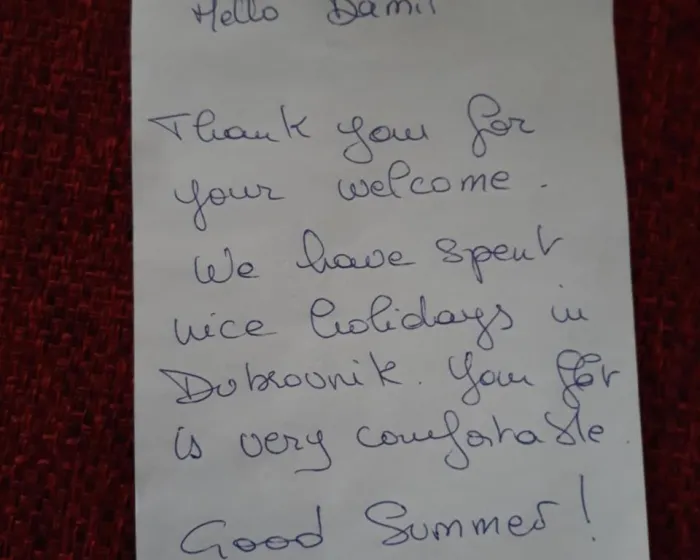 Hello Damir
Thank you for
your welcome.
We have spent
nice holidays in
Dubrovnik. Your
is very comfortable.
Good Summer!